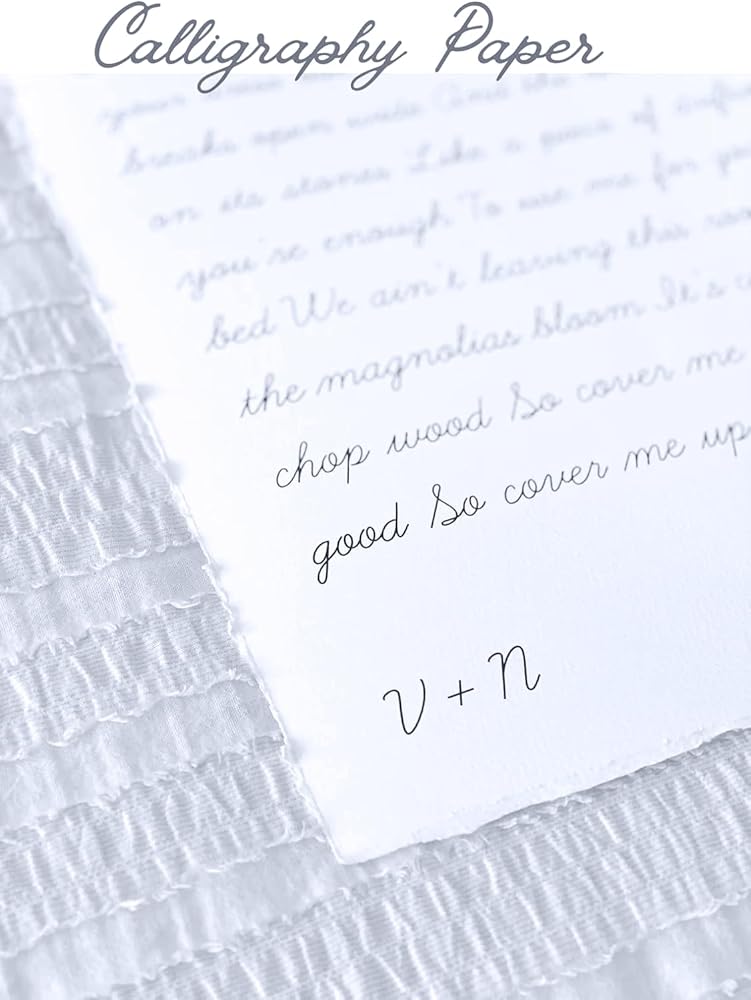 Calligraphy Paper
your
breaks open wide And the
on its stones Like a piece of
you're enough To use me for
bed We ain't leaving this roo
the magnolias bloom It's
chop wood So cover me
good So cover me up
V + N